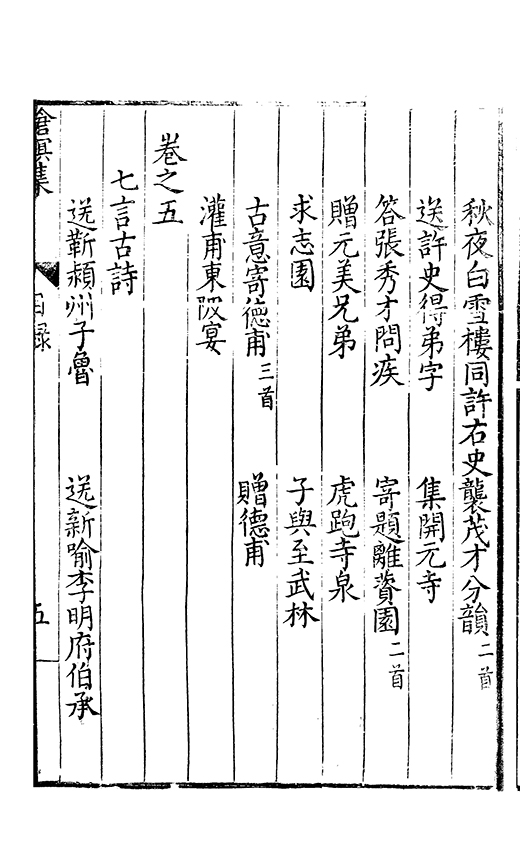 秋夜白雪樓同許右史襲茂才分韻二首
送許史得弟字　集開元寺
答張秀才問疾　寄題離薋園二首
贈元美兄弟　虎跑寺泉
求志園　子與至武林
古意寄德甫三首　贈德甫
灌甫東陂宴
卷之五
七言古詩
送靳潁州子魯　送新喻李明府伯承
滄溟集　目録　五